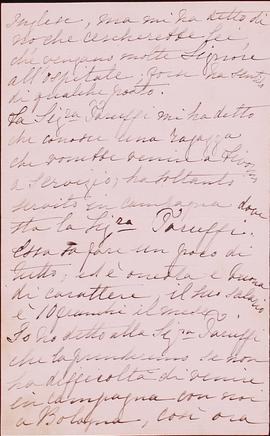 Inglese, ma mi ha detto di
no che cercherebbe lei,
che vengono molte Signore
all'ospitale, forse ha sentito
di qualche posto.
La Sigra Paruffi mi ha detto
che conosce una ragazza
che vorrebbe venire a Livorno
a servizio; ha soltanto
servito in campagna dove
sta la Sigra Paruffi.
Essa sa fare un poco di
tutto; ed è onesta e buona
di carattere, il suo salario
è 10 franchi il mese.
Io ho detto alla Sigra Paruffi
che la prenderemo se non
ha difficoltà di venire
in campagna con noi
a Bologna, così ora